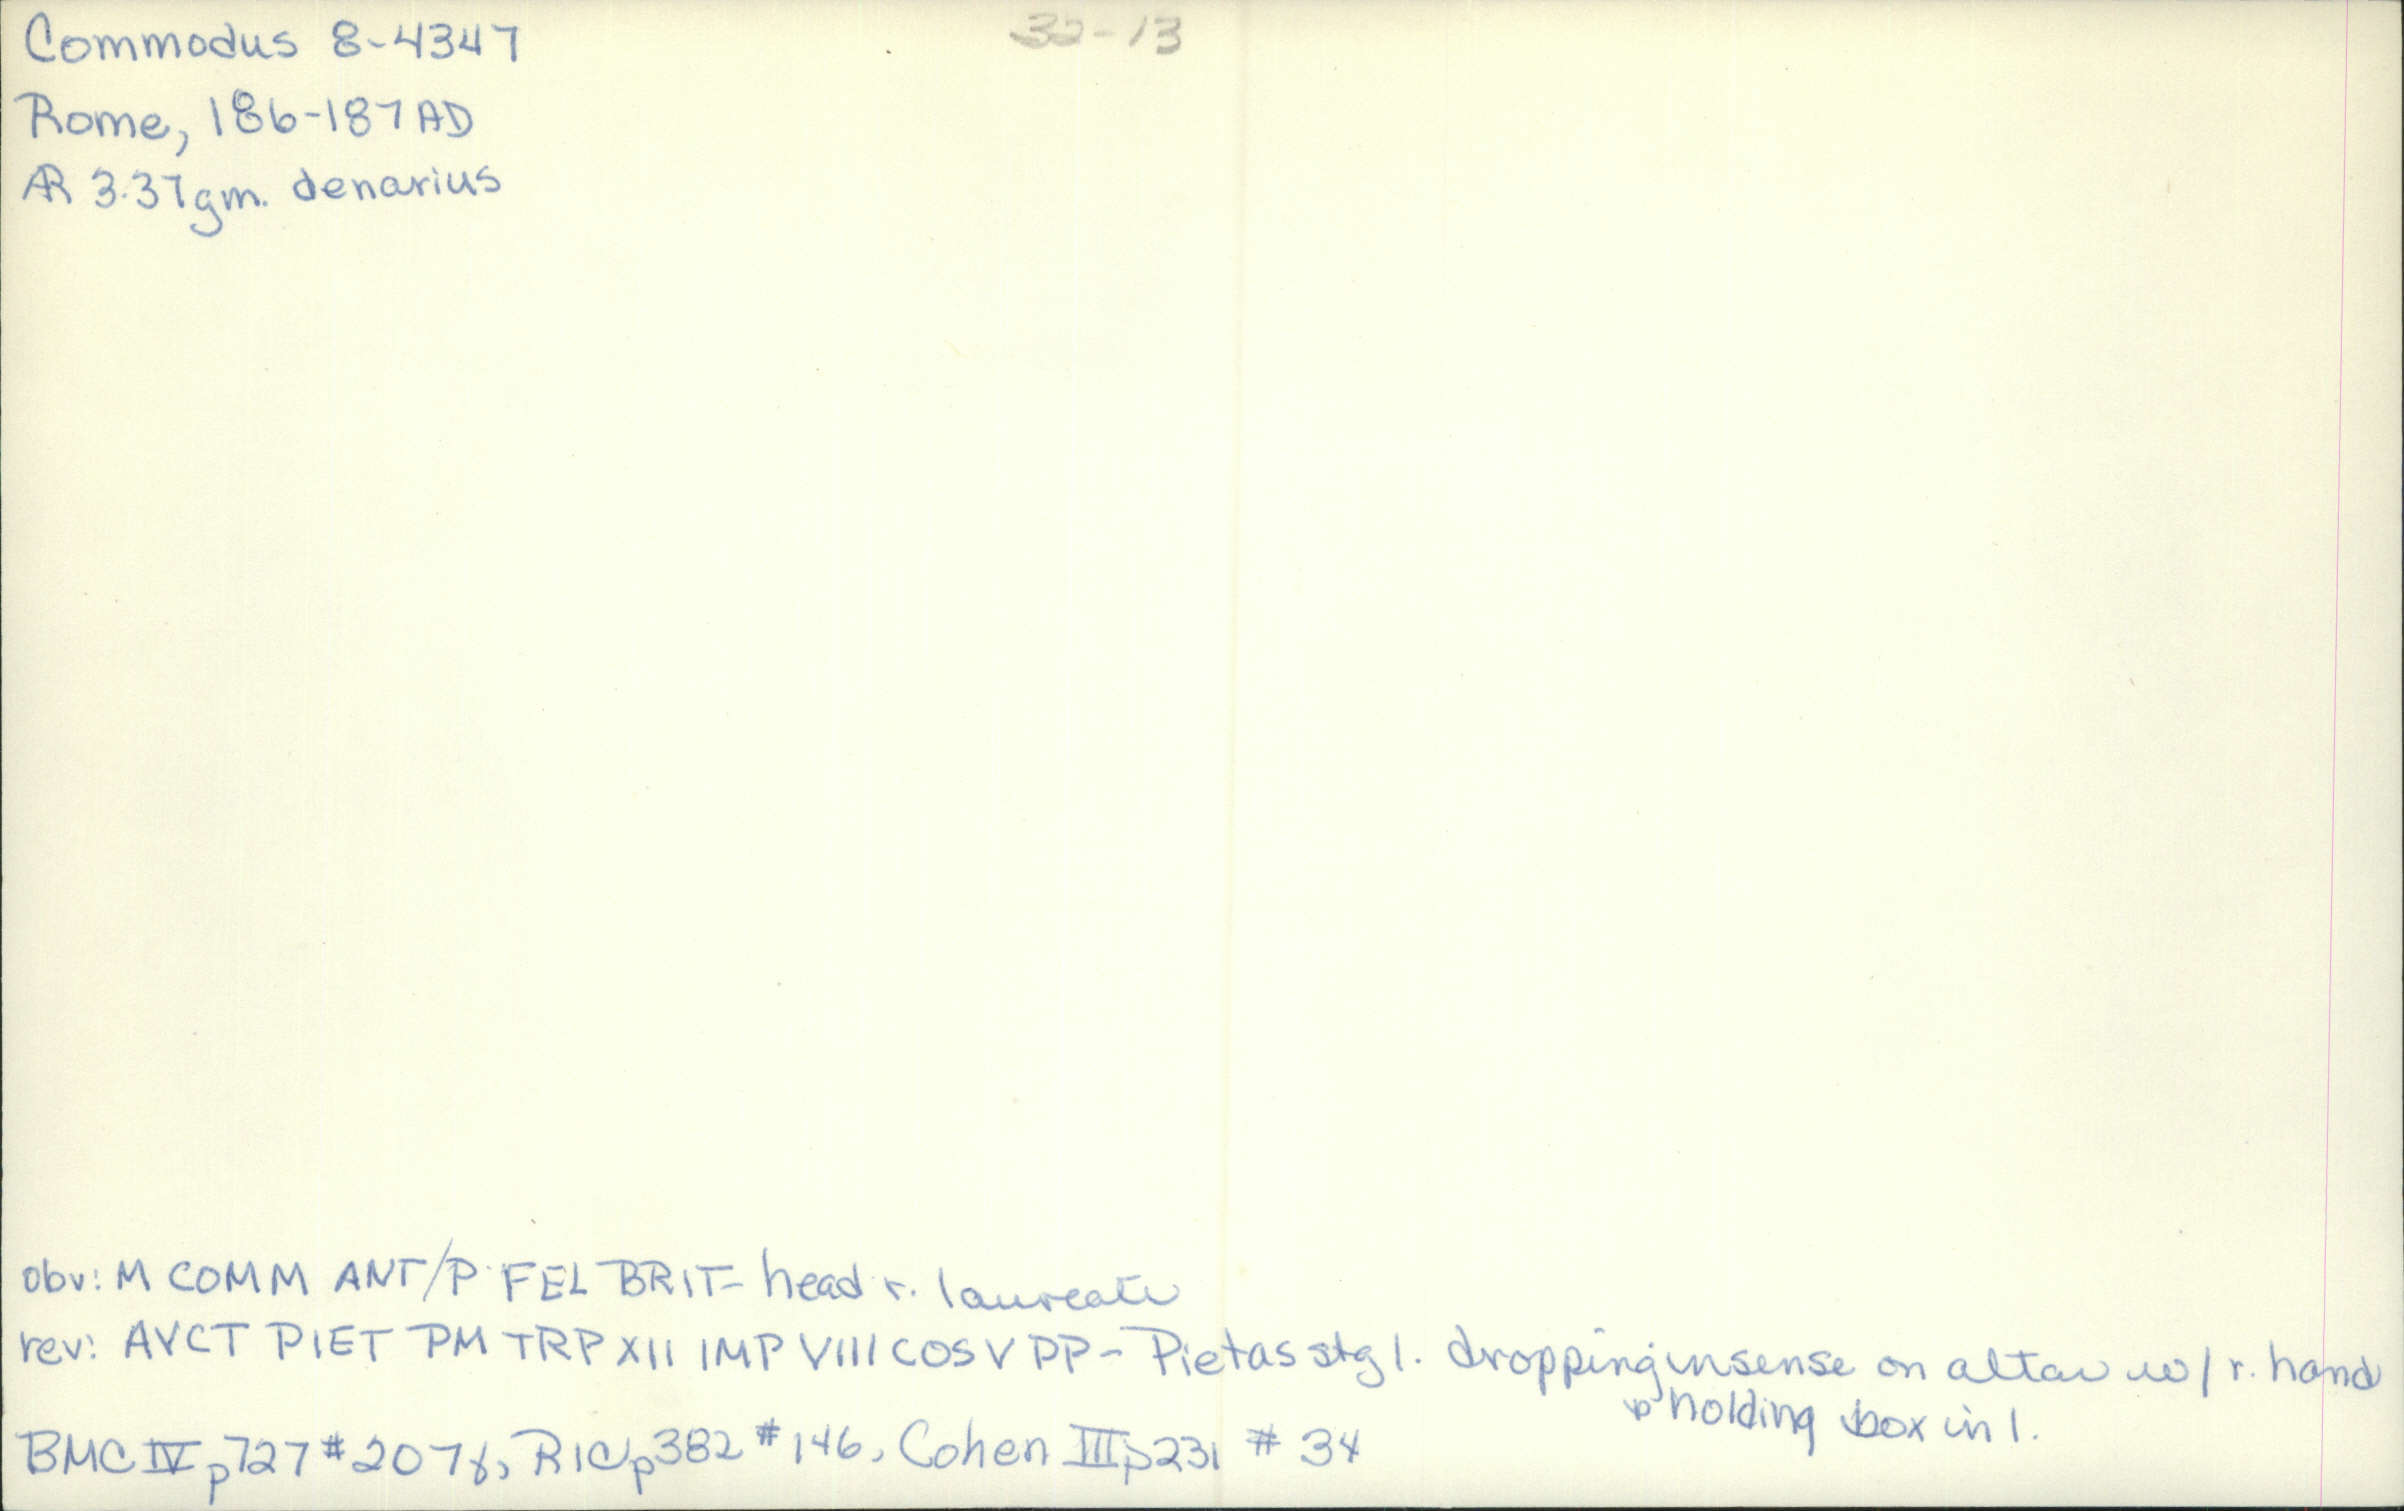 Commodus 8-4347
32-13
Rome, 186-187 AD
AR 3.37gm. denarius
obv: M COMM ANT/P FEL BRIT- head r. laureate
rev: AVCT PIET PM TRP XII IMP VIII COS V PP- Pietas stg l. dropping insense on altar w/ r. hand
& holding box in l.
BMC IV p727 #207γ, RIC p382 #146, Cohen III p231 #34